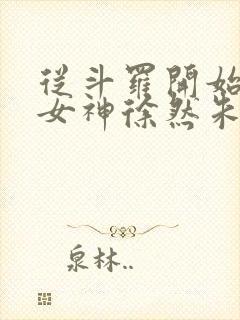 從斗羅開始
女神徐然朱
泉林..